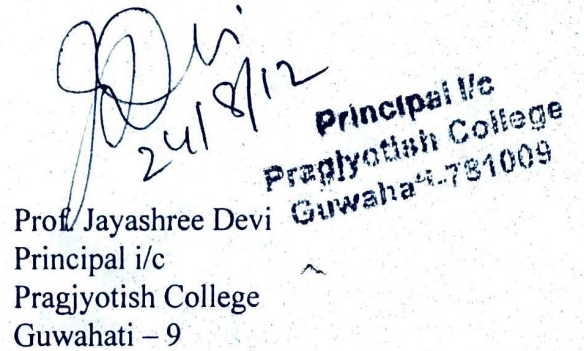 JDevi
24/8/12
Principal i/c
Pragjyotish College
Guwahati-781009
Prof. Jayashree Devi
Principal i/c
Pragjyotish College
Guwahati – 9